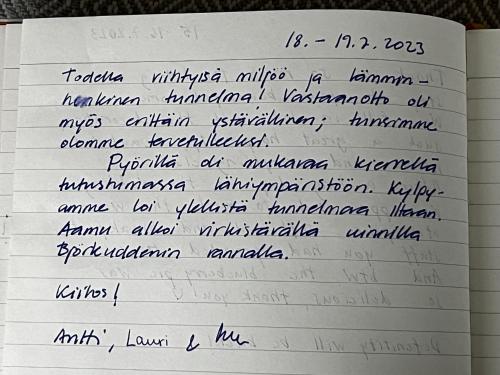 18. – 19.7.2023
Todella viihtyisä miljöö ja lämmin-
henkinen tunnelma! Vastaanotto oli
myös erittäin ystävällinen; tunsimme
olomme tervetulleeksi.
Pyörillä oli mukavaa kierrellä
tutustumassa lähiympäristöön. Kylpy-
amme loi ylellistä tunnelmaa iltaan.
Aamu alkoi virkistävällä uinnilla
Björkuddenin rannalla.
Kiitos!
Antti, Lauri &